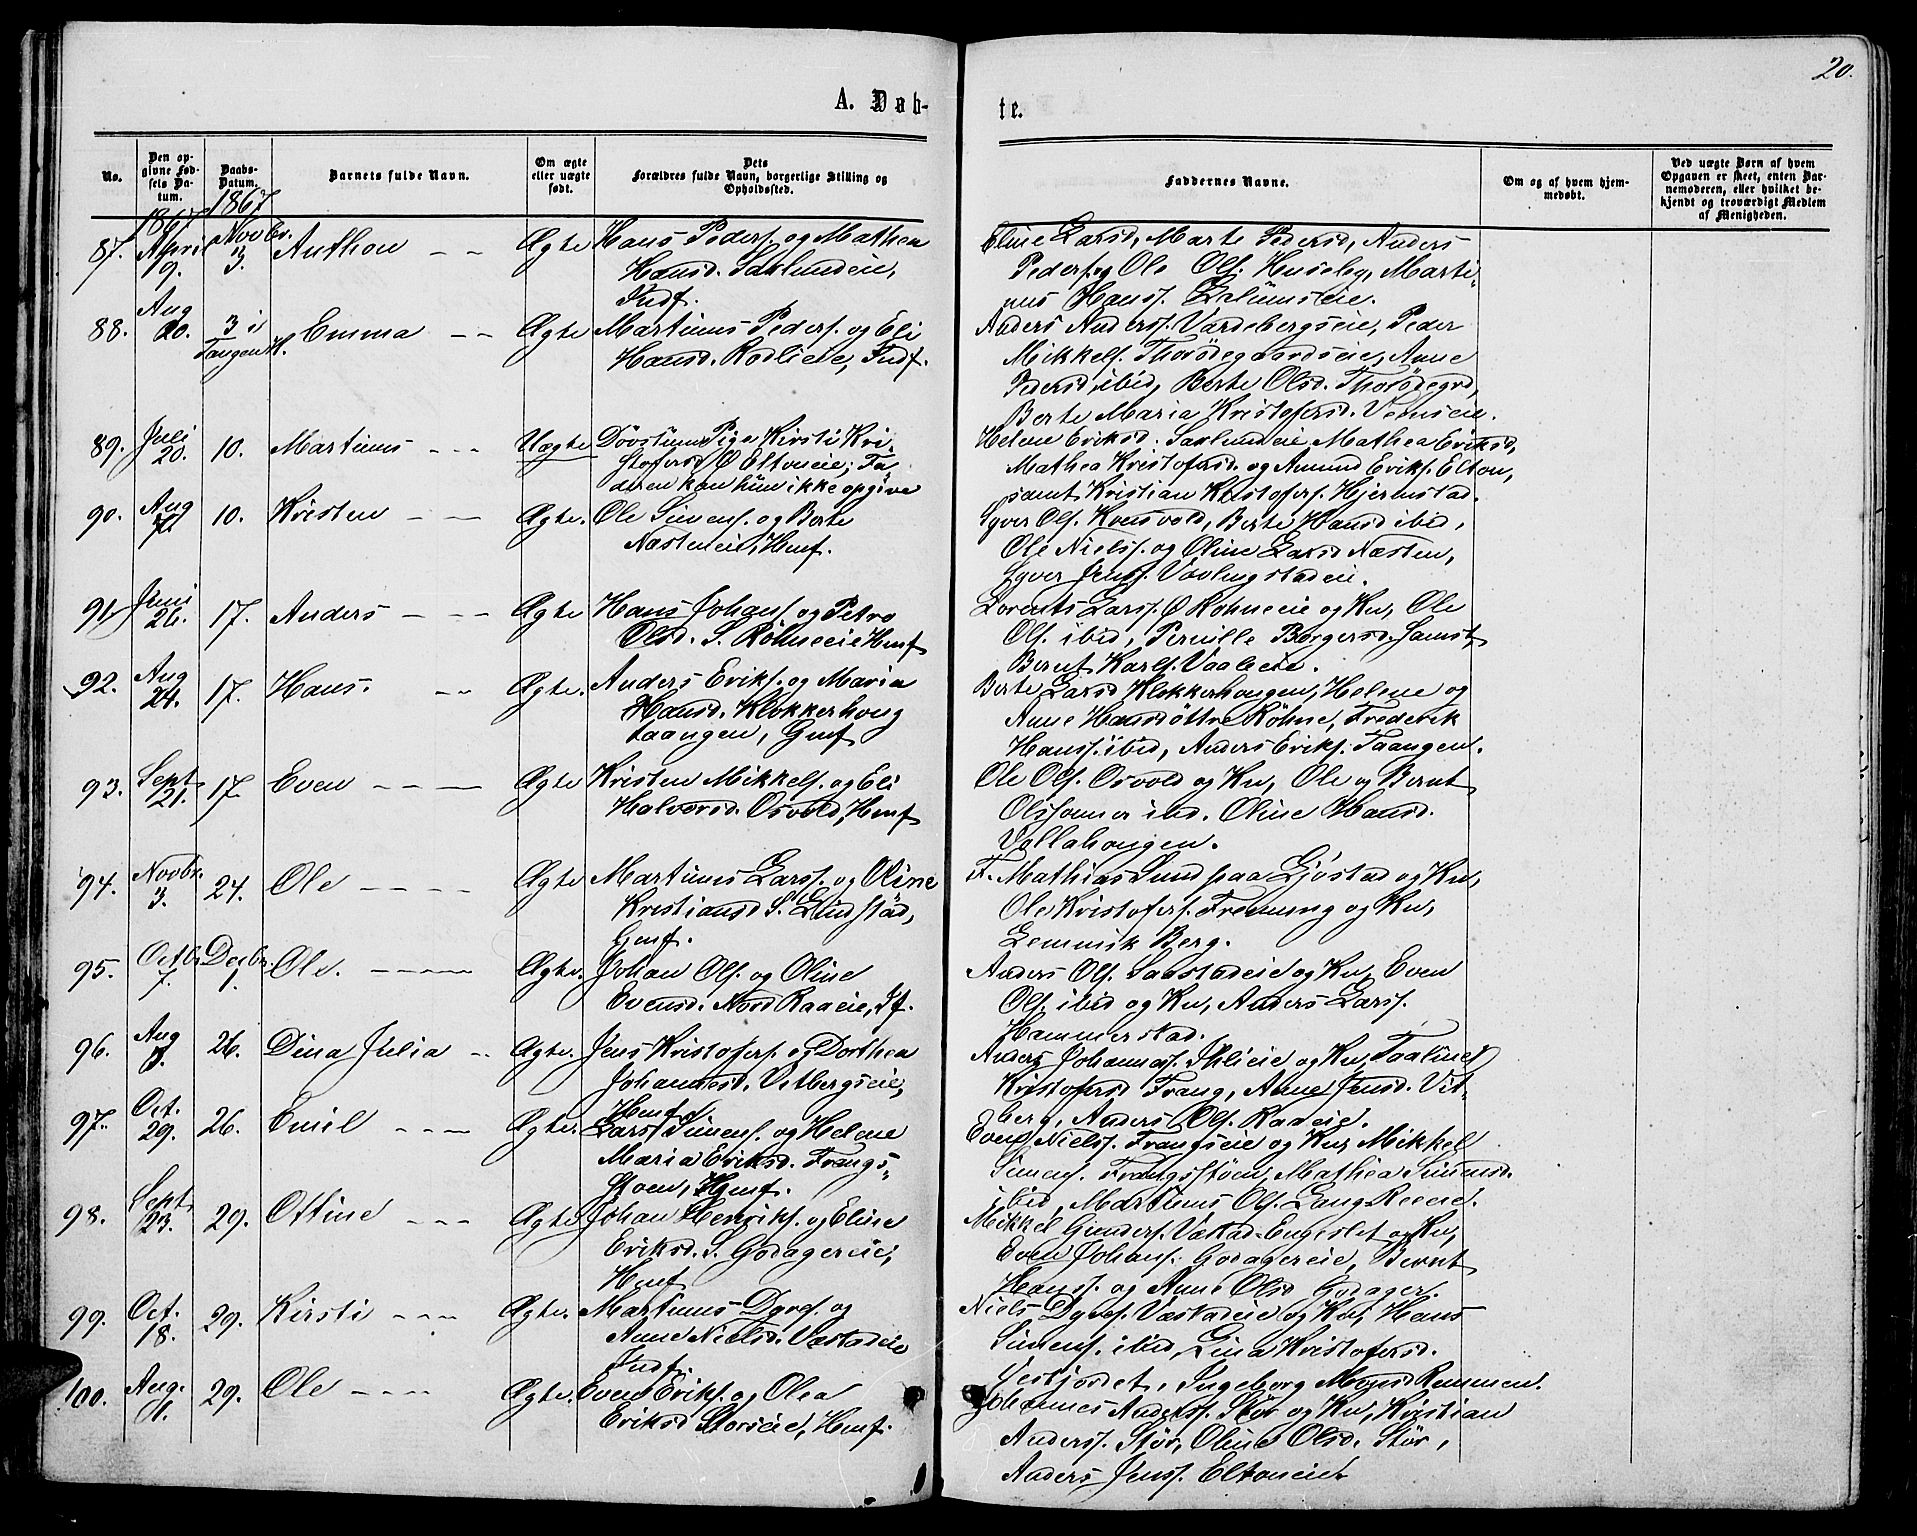 20.
A. Døb-
te.
No.
Den op-
givne Fød-
sels Da-
tum.
Daabs-
Datum.
Barnets fulde Navn.
Om ægte
eller uægte
født.
Dets
Forældres fulde Navn, borgerlige Stilling og
Opholdssted.
Faddernes Navne.
Om og af hvem hjem-
medøbt.
Ved uægte Børn af hvem
Opgaven er skeet, enten Bar-
nemoderen, eller hvilket be-
kjendt og troværdigt Medlem
af Menigheden.
1867 1867
87. April 19. Novbr. 3. Anthon Ægte Hans Peders. og Mathea
Hansd. Saxlundeie,
Indf.
Eline Larsd, Marte Pedersd, Anders
Peders. og Ole Ols. Huseby, Marti-
nus Hanss.
88. Aug 20. 3 i Tangen K. Emma Ægte Martinus Peders. og Eli
Hansd. Rodlieie, Indf.
Anders Anderss. Vardebergseie, Peder
Mikkels. Thorsdegaardseie, Anne
Pedersd ibid, Berte Olsd. Thorsdegrd,
Berte Maria Kristofersd. Vemseie.
89. Juli 20. 10. Martinus Uægte Døvstum Pige Kirsti Kri-
stofersd Ø Eltoneie; Fa-
deren kan hun ikke opgive
Helene Eriksd. Saxlundeie Mathea Eriksd,
Mathea Kristofersd. og Amund Eriks. Elton,
samt Kristian Kristofers. Hjermstad.
90. Aug 7. 10. Kristen Ægte. Ole Simens. og Berte
Næsteneie, Hmf.
Syver Ols. Kvensvold, Berte Hansd ibid,
Ole Nielss. og Oline Larsd Næsten,
Syver Jenss. Vavlingstadeie.
91. Juni 26. 17. Anders Ægte Hans Johans. og Petra
Olsd. S. Røhneeie Hmf
Lorents Larss. Ø Røhneeie og Kn, Ole
Ols. ibid, Pernille Borgersd. samst,
Bernt Karls. Vaaleeie.
92. Aug 24. 17. Hans. Ægte. Anders Eriks. og Maria
Hansd. Klokkerhoug
taangen, Gmf
Berte Larsd Klokkerhougen, Helene og
Anne Hansdøttre Røhne, Frederik
Hanss. ibid, Anders Eriks. Taangen.
93. Sept 21. 17 Even Ægte Kristen Mikkels. og Eli
Halvorsd. Osvold, Hmf
Ole Ols. Osvold og Kn, Ole og Bernt
Olssønner ibid. Oline Hansd.
Vollahougen.
94. Novbr. 3. 24. Ole Ægte Martinus Larss. og Oline
Kristiansd S. Lundstad,
Gmf.
F. Mathias Lund paa Gjøstad og Kn,
Ole Kristofers. Freuung og Kn,
Lemmik Berg.
95. Octbr. 7. Decbr. 1. Ole. Ægte. Johan Ols. og Oline
Evensd. Nord Raaeie, If.
Anders Ols. Saastadeie og Kn, Even
Ols. ibid og Kn, Anders Larss.
Hammerstad.
96. Aug 8. 26. Dina Julia Ægte. Jens Kristofers. og Dorthea
Johannesd. Vitbergseie,
Hmf.
Anders Johanness. Ihlieie og Kn,
Kristofersd Frang, Anne Jensd. Vit-
berg, Anders Ols. Raaeie.
97. Oct. 29. 26. Emil Ægte. Lars Simens. og Helene
Maria Eriksd. Frangs-
støen, Hmf.
Even Nielss. Frangseie og Kn, Mikkel
Simens. Frangsstøen, Mathea Simensd.
ibid, Martinus Ols. Lang-Reeeie.
98. Sept 23. 29. Ottine Ægte Johan Henriks. og Eline
Eriksd. S. Godagereie,
Hmf
Mikkel Gunders. Vestad-Engeslet og Kn,
Even Johans. Godagereie, Bernt
Hanss. og Anne Olsd Godager.
99. Oct. 18. 29. Kirsti Ægte. Martinus Dyres. og
Anne Nielsd. Væstadeie
Indf.
Niels Dyres. Væstadeie og Kn, Hans
Simens. ibid, Lina Kristofersd.
Gestjordet, Ingeborg Mogensd Rommen.
100. Aug. 11. 29. Ole Ægte. Even Eriks. og Olea
Eriksd Størseie, Hmf.
Johannes Anderss. Stør og Kn, Kristian
Anderss. Stør, Oline Olsd. Stør,
Anders Jenss. Eltoneiet